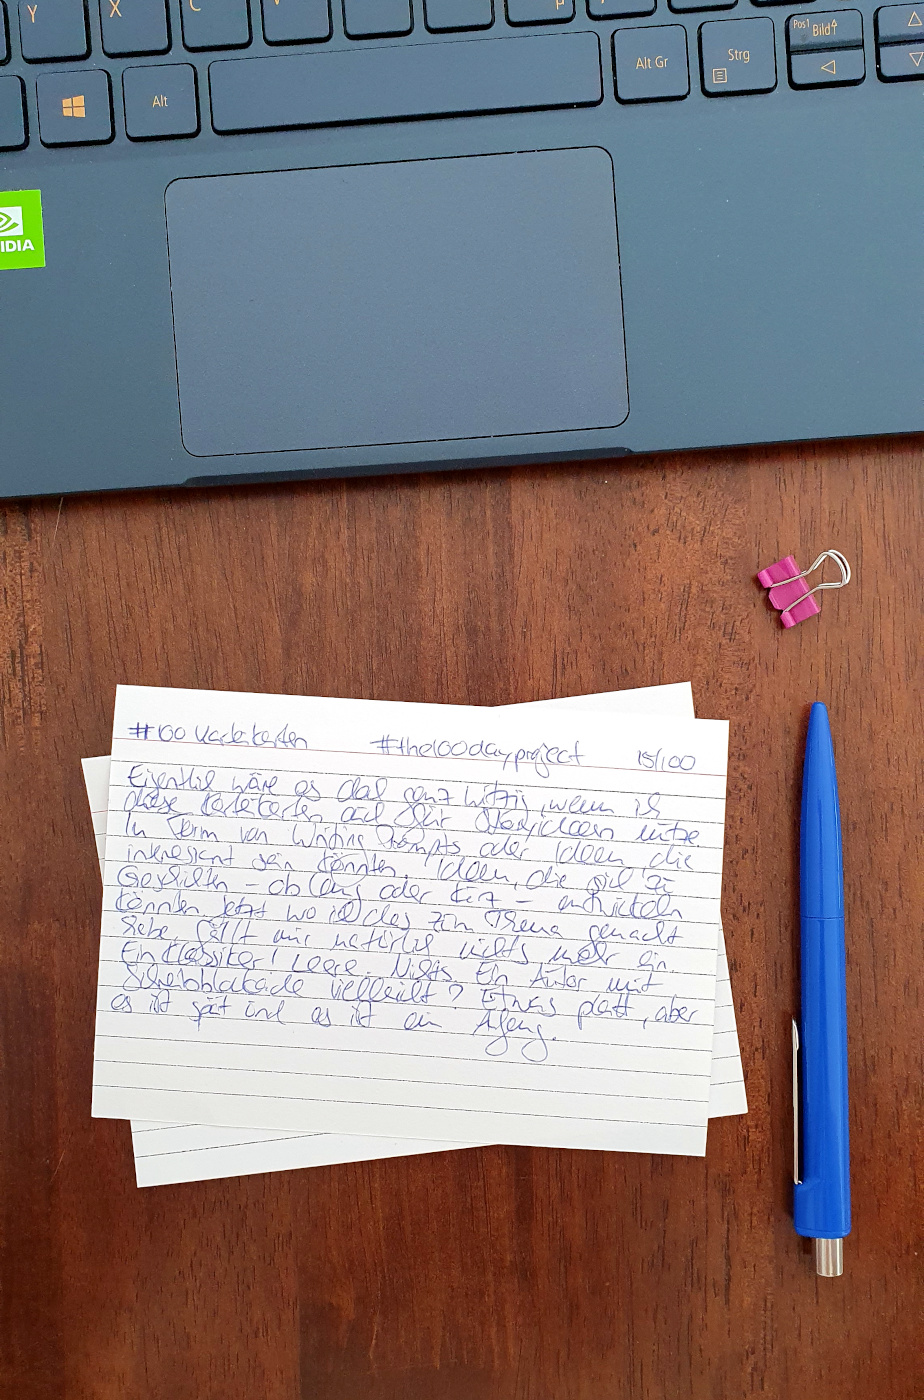 Y X C V µ
Alt Alt Gr Strg Pos1 Bild↑
NVIDIA
#100 Karteikarten #the100dayproject 15/100
Eigentlich wäre es doch ganz witzig, wenn ich
diese Karteikarten auch für Storyideen nutze
In Form von Writing Prompts oder Ideen, die
interessant sein könnten. Ideen, die sich zu
Geschichten – ob lang oder kurz – entwickeln
könnten. Jetzt wo ich das zum Thema gemacht
habe fällt mir natürlich nichts mehr ein.
Ein Klassiker! Leere. Nichts. Ein Autor mit
Schreibblockade vielleicht? Etwas platt, aber
es ist spät und es ist ein Anfang.